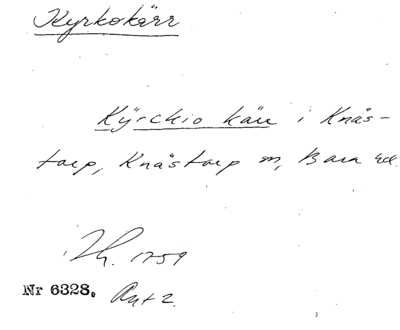 Kyrkokärr
Kÿrchio kärr i Knäs-
torp, Knästorp sn, Bara hd.
1759
Nr 6328. Ant 2.